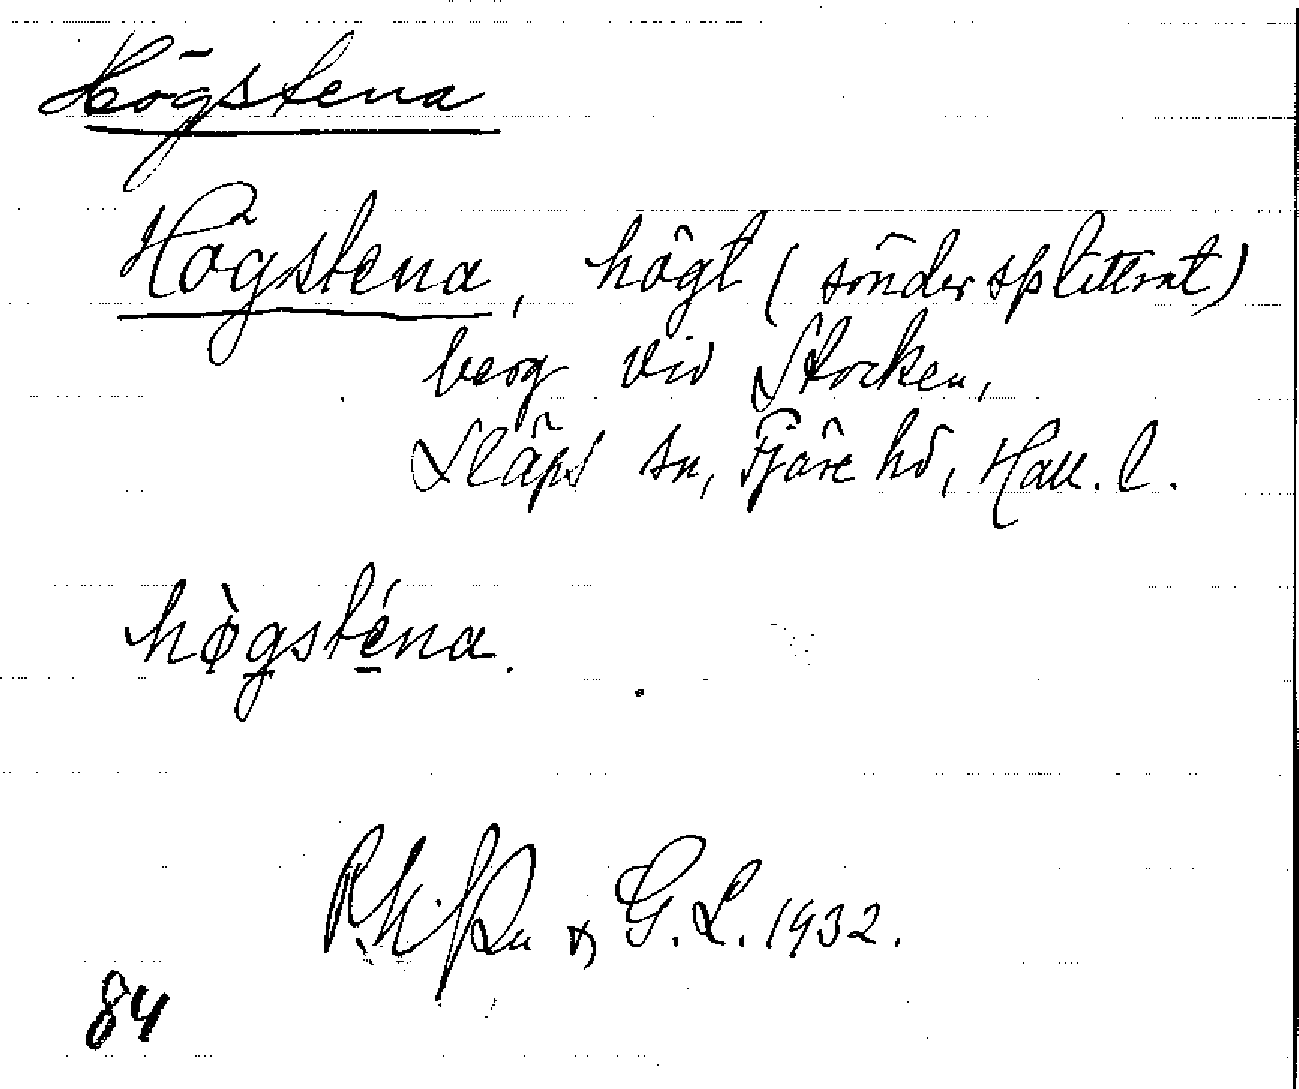 Högstena
Högstena, högt (söndersplittrat)
berg vid Stocken,
Släps sn, Fjäre hd, Hall. l.
hø̀gsténa.
G. L. 1932.
84